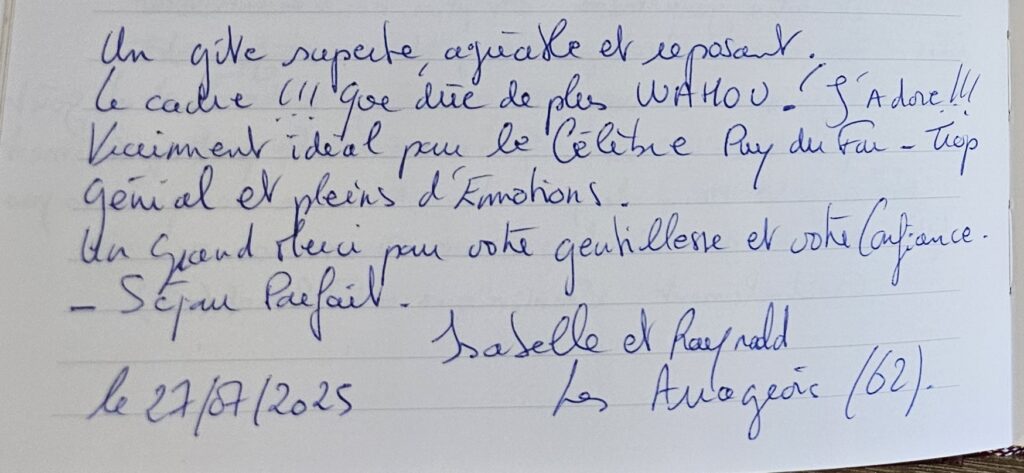 Un gîte superbe, agréable et reposant.
Le cadre !!! Que dire de plus WAHOU ! J'Adore !!!
Vraiment idéal pour le Célèbre Puy du Fou - Trop
génial et pleins d'Emotions.
Un Grand Merci pour votre gentillesse et votre Confiance.
- Séjour Parfait.
Isabelle et Raynald
le 27/07/2025
Les (62).